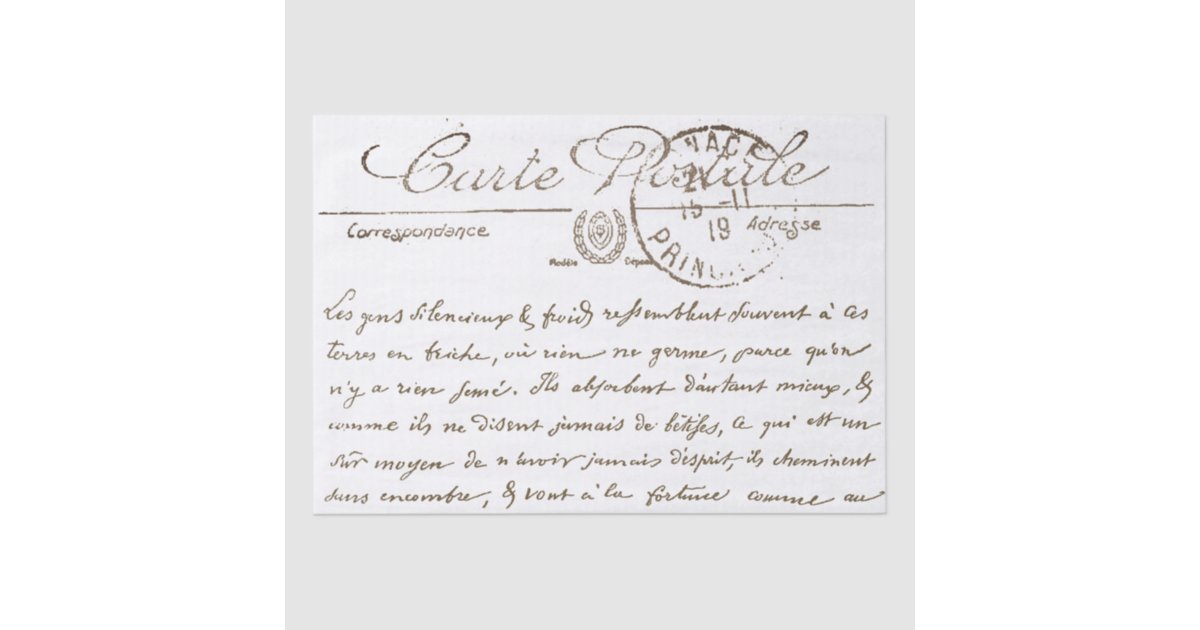 Carte Postale
Correspondance
Adresse
NACO
21
15 -11
19
PRINC
Modèle Déposé
Les gens silencieux & froids ressemblent souvent à ces
terres en friche, où rien ne germe, parce qu'on
n'y a rien semé. Ils absorbent d'autant mieux, &
comme ils ne disent jamais de bêtises, ce qui est un
sûr moyen de n'avoir jamais d'esprit, ils cheminent
sans encombre, & vont à la fortune comme au